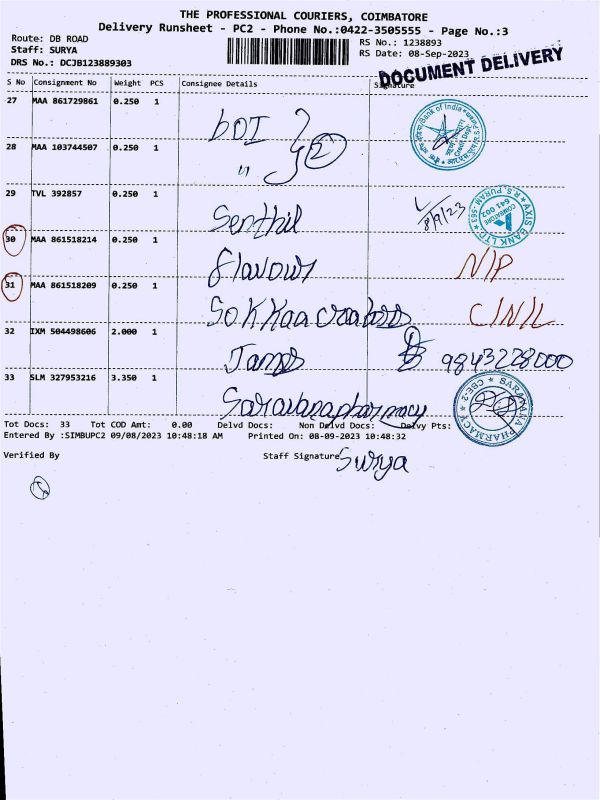 THE PROFESSIONAL COURIERS, COIMBATORE
Delivery Runsheet - PC2 - Phone No.:0422-3505555 - Page No.:3
Route: DB ROAD
Staff: SURYA
DRS No.: DCJB123889303
RS No.: 1238893
RS Date: 08-Sep-2023
DOCUMENT DELIVERY
S No Consignment No Weight PCS Consignee Details Signature
27 MAA 861729861 0.250 1 bOI
28 MAA 103744507 0.250 1 " 2
Bank of India
Credit Dept
29 TVL 392857 0.250 1 Senthil 8/9/23
AXIS BANK LTD R.S. PURAM
COIMBATORE
641 002
30 MAA 861518214 0.250 1 flavour N/P
31 MAA 861518209 0.250 1 C/N/L
32 IXM 504498606 2.000 1 9843228000
33 SLM 327953216 3.350 1 Saravanapharmacy
SARAVANA PHARMACY CBE-2
Tot Docs: 33 Tot COD Amt: 0.00 Delvd Docs: Non Delvd Docs: Delvy Pts:
Entered By :SIMBUPC2 09/08/2023 10:48:18 AM Printed On: 08-09-2023 10:48:32
Verified By Staff Signature Surya